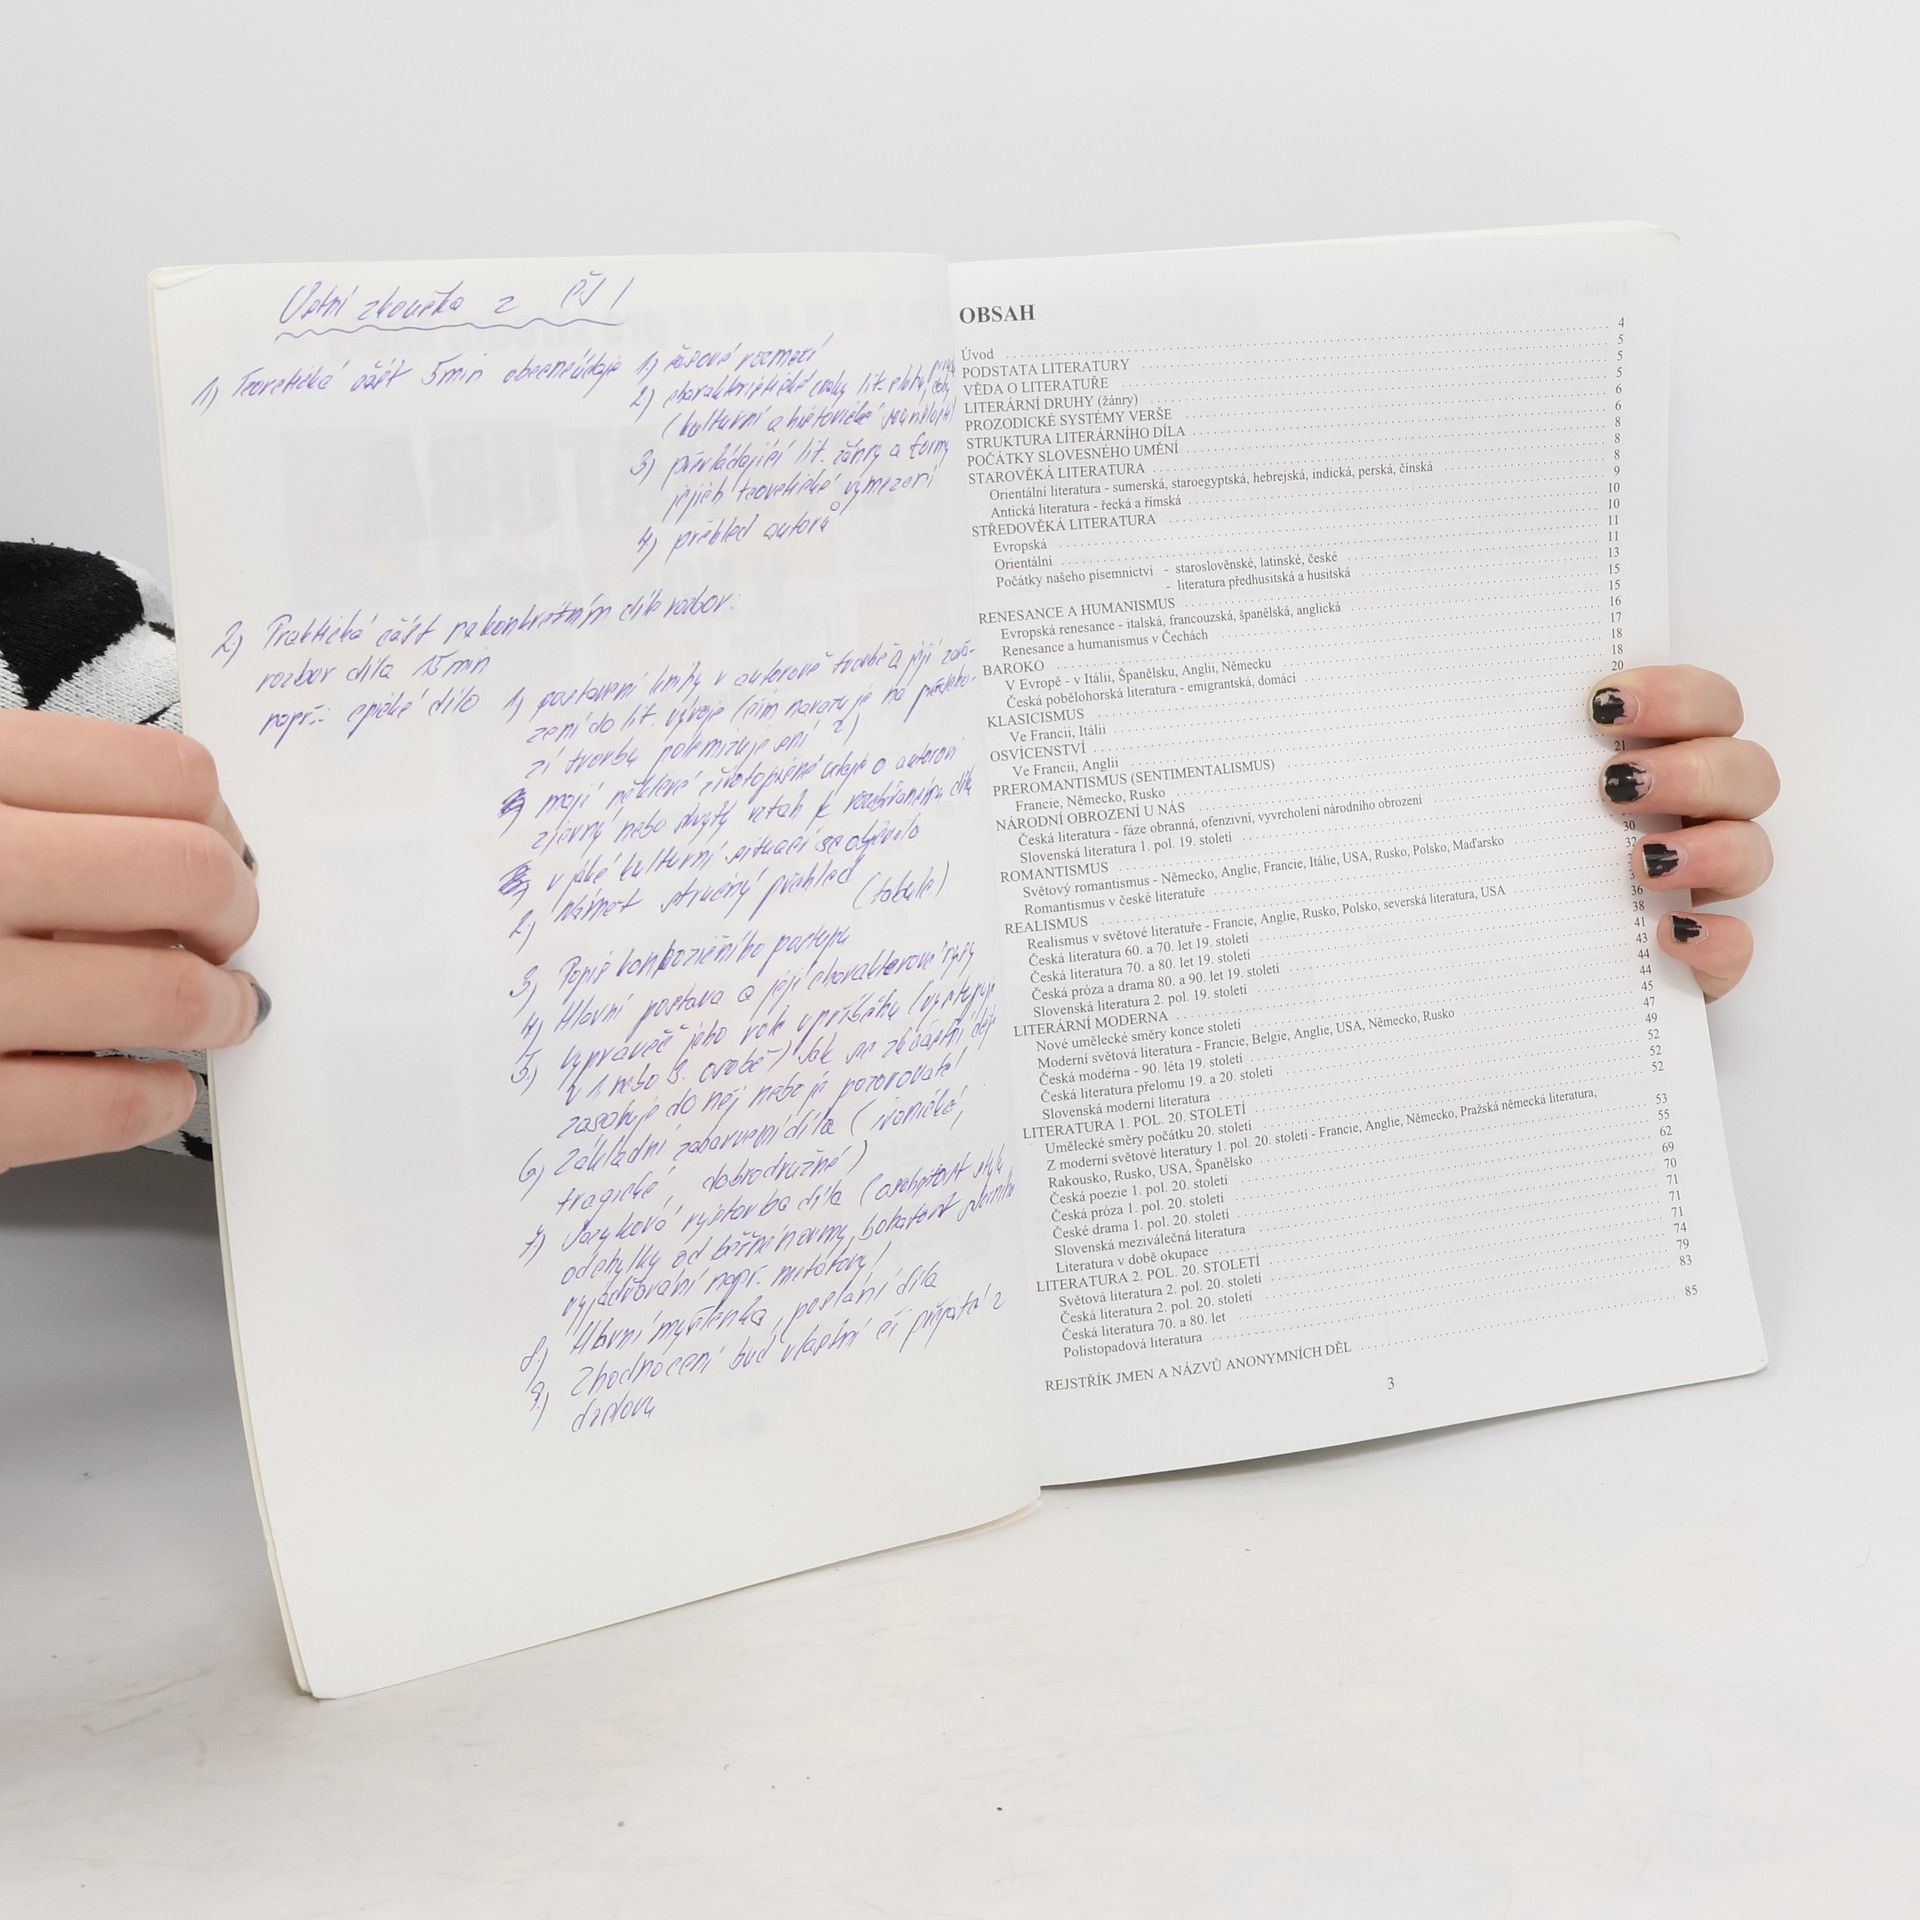 Ústní zkouška z ČJ
1) Teoretická část 5 min obecné údaje
1) časové rozmezí
2) charakteristické znaky lit. slohu,
(kulturní a historické souvislosti)
3) převládající lit. žánry a formy
jejich teoretické vymezení
4) přehled autorů
2) Praktická část na konkrétním díle rozbor:
rozbor díla 15 min
např.: epické dílo
1) postavení knihy v autorově tvorbě a její zařa-
zení do lit. vývoje (čím navazuje na předcho-
zí tvorbu, polemizuje s ní ?)
mají některé životopisné údaje o autorovi
zjevný nebo skrytý vztah k rozebíranému dílu
v jaké kulturní situaci se objevilo
2) Námět stručný přehled
(tabule)
3) Popis kompozičního postupu
4) Hlavní postava a její charakterové rysy
5.) vypravěč jeho role v příběhu (vystupuje
v 1. nebo 3. osobě) Jak se zúčastní děje
zasahuje do něj nebo je pozorovatel
6) Základní zabarvení díla (ironické,
tragické, dobrodružné)
7) Jazyková výstavba díla (osobitost stylu
odchylky od běžné normy, bohatost slovního
vyjadřování např. metafory)
8) Hlavní myšlenka, poslání díla
9.) Zhodnocení buď vlastní či přijaté z
doslovu
OBSAH
Úvod 4
PODSTATA LITERATURY 5
VĚDA O LITERATUŘE 5
LITERÁRNÍ DRUHY (žánry) 5
PROZODICKÉ SYSTÉMY VERŠE 6
STRUKTURA LITERÁRNÍHO DÍLA 6
POČÁTKY SLOVESNÉHO UMĚNÍ 8
STAROVĚKÁ LITERATURA 8
Orientální literatura - sumerská, staroegyptská, hebrejská, indická, perská, čínská 8
Antická literatura - řecká a římská 9
STŘEDOVĚKÁ LITERATURA 10
Evropská 10
Orientální 11
Počátky našeho písemnictví - staroslověnské, latinské, české 11
- literatura předhusitská a husitská 13
RENESANCE A HUMANISMUS 15
Evropská renesance - italská, francouzská, španělská, anglická 15
Renesance a humanismus v Čechách 16
BAROKO 17
V Evropě - v Itálii, Španělsku, Anglii, Německu 18
Česká pobělohorská literatura - emigrantská, domácí 18
KLASICISMUS 20
Ve Francii, Itálii
OSVÍCENSTVÍ
Ve Francii, Anglii
PREROMANTISMUS (SENTIMENTALISMUS) 21
Francie, Německo, Rusko
NÁRODNÍ OBROZENÍ U NÁS
Česká literatura - fáze obranná, ofenzivní, vyvrcholení národního obrození
Slovenská literatura 1. pol. 19. století
ROMANTISMUS 30
Světový romantismus - Německo, Anglie, Francie, Itálie, USA, Rusko, Polsko, Maďarsko
Romantismus v české literatuře
REALISMUS 36
Realismus v světové literatuře - Francie, Anglie, Rusko, Polsko, severská literatura, USA 38
Česká literatura 60. a 70. let 19. století 41
Česká literatura 70. a 80. let 19. století 43
Česká próza a drama 80. a 90. let 19. století 44
Slovenská literatura 2. pol. 19. století 44
LITERÁRNÍ MODERNA 45
Nové umělecké směry konce století 47
Moderní světová literatura - Francie, Belgie, Anglie, USA, Německo, Rusko 49
Česká moderna - 90. léta 19. století 52
Česká literatura přelomu 19. a 20. století 52
Slovenská moderní literatura 52
LITERATURA 1. POL. 20. STOLETÍ
Umělecké směry počátku 20. století
Z moderní světové literatury 1. pol. 20. století - Francie, Anglie, Německo, Pražská německá literatura,
Rakousko, Rusko, USA, Španělsko 53
Česká poezie 1. pol. 20. století 55
Česká próza 1. pol. 20. století 62
České drama 1. pol. 20. století 69
Slovenská meziválečná literatura 70
Literatura v době okupace 71
LITERATURA 2. POL. 20. STOLETÍ 71
Světová literatura 2. pol. 20. století 71
Česká literatura 2. pol. 20. století 74
Česká literatura 70. a 80. let 79
Polistopadová literatura 83
REJSTŘÍK JMEN A NÁZVŮ ANONYMNÍCH DĚL 85
3